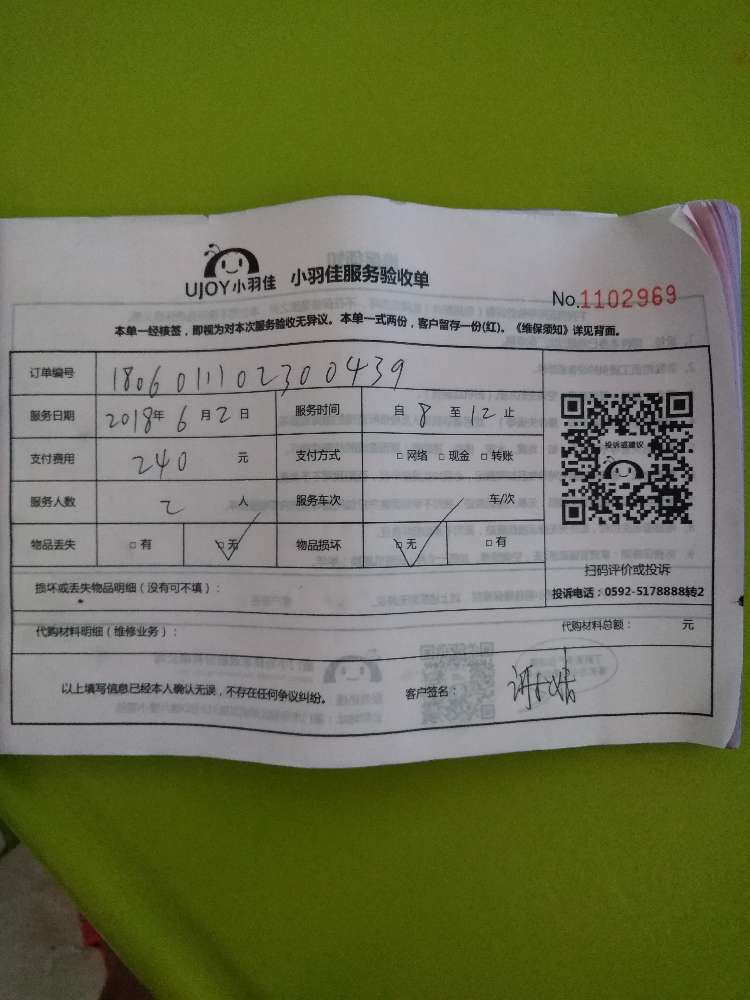 UJOY小羽佳 小羽佳服务验收单
No.1102969
本单一经核签，即视为对本次服务验收无异议。本单一式两份，客户留存一份(红)。《维保须知》详见背面。
订单编号 1806011102300439
服务日期 2018年6月2日 服务时间 自8至12止
投诉或建议
支付费用 240 元 支付方式 □网络 □现金 □转账
服务人数 2 人 服务车次 车/次
物品丢失 □有 □无 物品损坏 □无 □有
扫码评价或投诉
损坏或丢失物品明细（没有可不填）： 投诉电话：0592-5178888转2
代购材料明细（维修业务）： 代购材料总额： 元
以上填写信息已经本人确认无误，不存在任何争议纠纷。 客户签名：